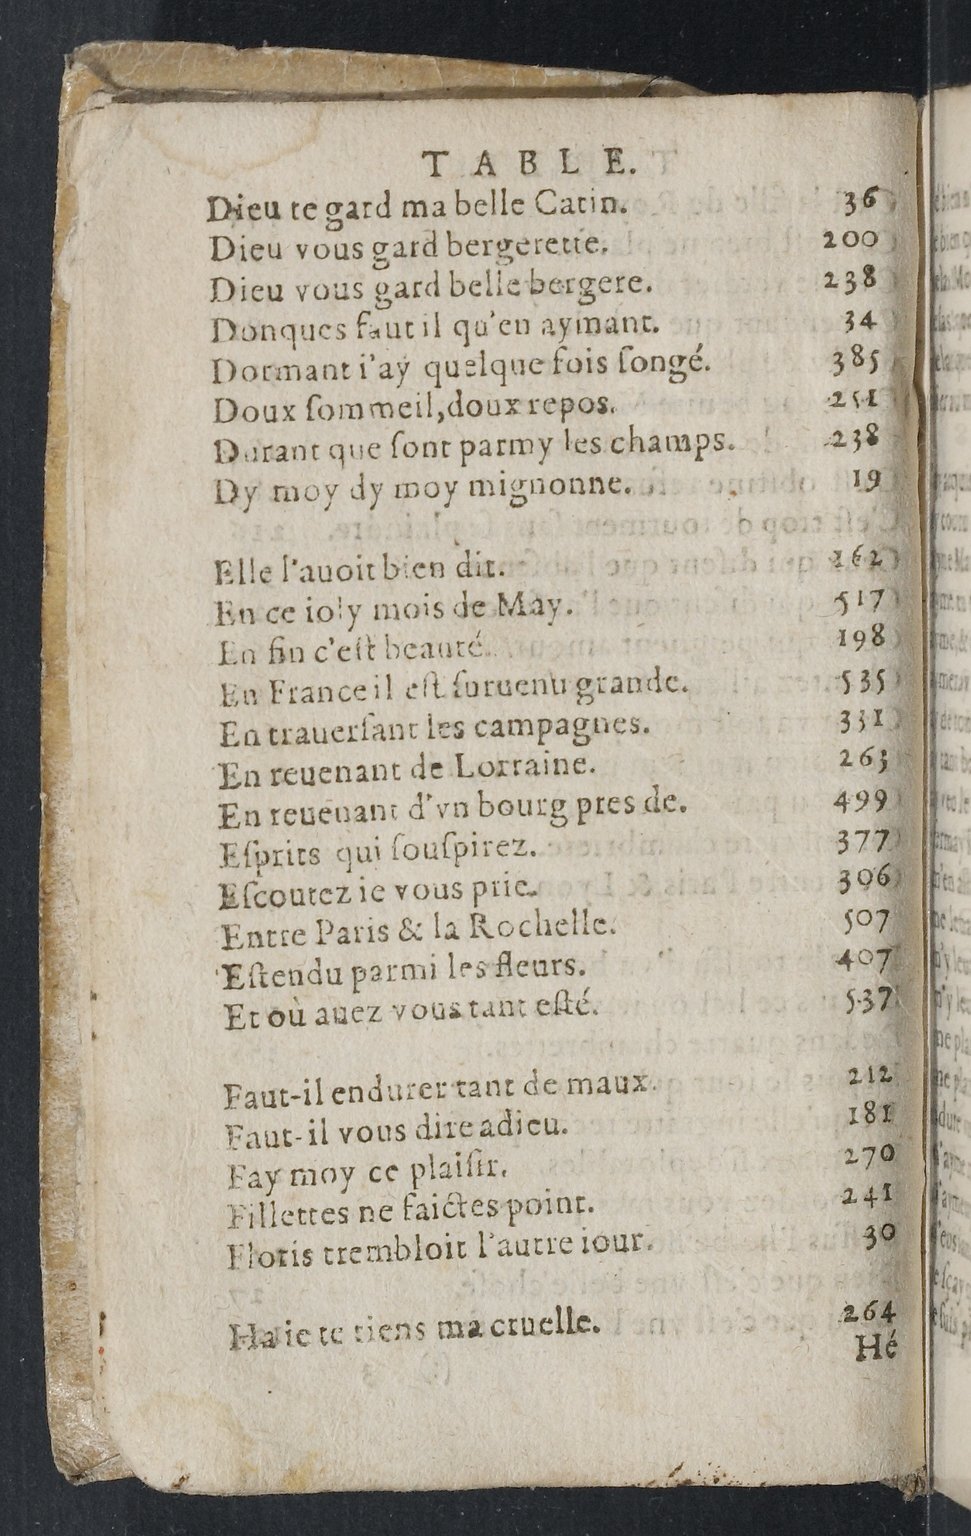 TABLE.
Dieu te gard ma belle Catin. 36
Dieu vous gard bergerette. 200
Dieu vous gard belle bergere. 238
Donques faut il qu'en aymant. 34
Dormant i'ay quelque fois ſongé. 385
Doux ſommeil, doux repos. 251
Durant que ſont parmy les champs. 238
Dy moy dy moy mignonne. 19
Elle l'auoit bien dit. 162
En ce ioly mois de May. 517
En fin c'eſt beauté. 198
En France il eſt ſuruenu grande. 535
En trauerſant les campagnes. 331
En reuenant de Lorraine. 263
En reuenant d'vn bourg pres de. 499
Eſprits qui ſouſpirez. 377
Eſcoutez ie vous prie. 306
Entre Paris & la Rochelle. 507
Eſtendu parmi les fleurs. 407
Et où auez vous tant eſté. 537
Faut-il endurer tant de maux. 212
Faut-il vous dire adieu. 181
Fay moy ce plaiſir. 270
Fillettes ne faictes point. 241
Floris trembloit l'autre iour. 30
Ha ie te tiens ma cruelle. 264
Hé